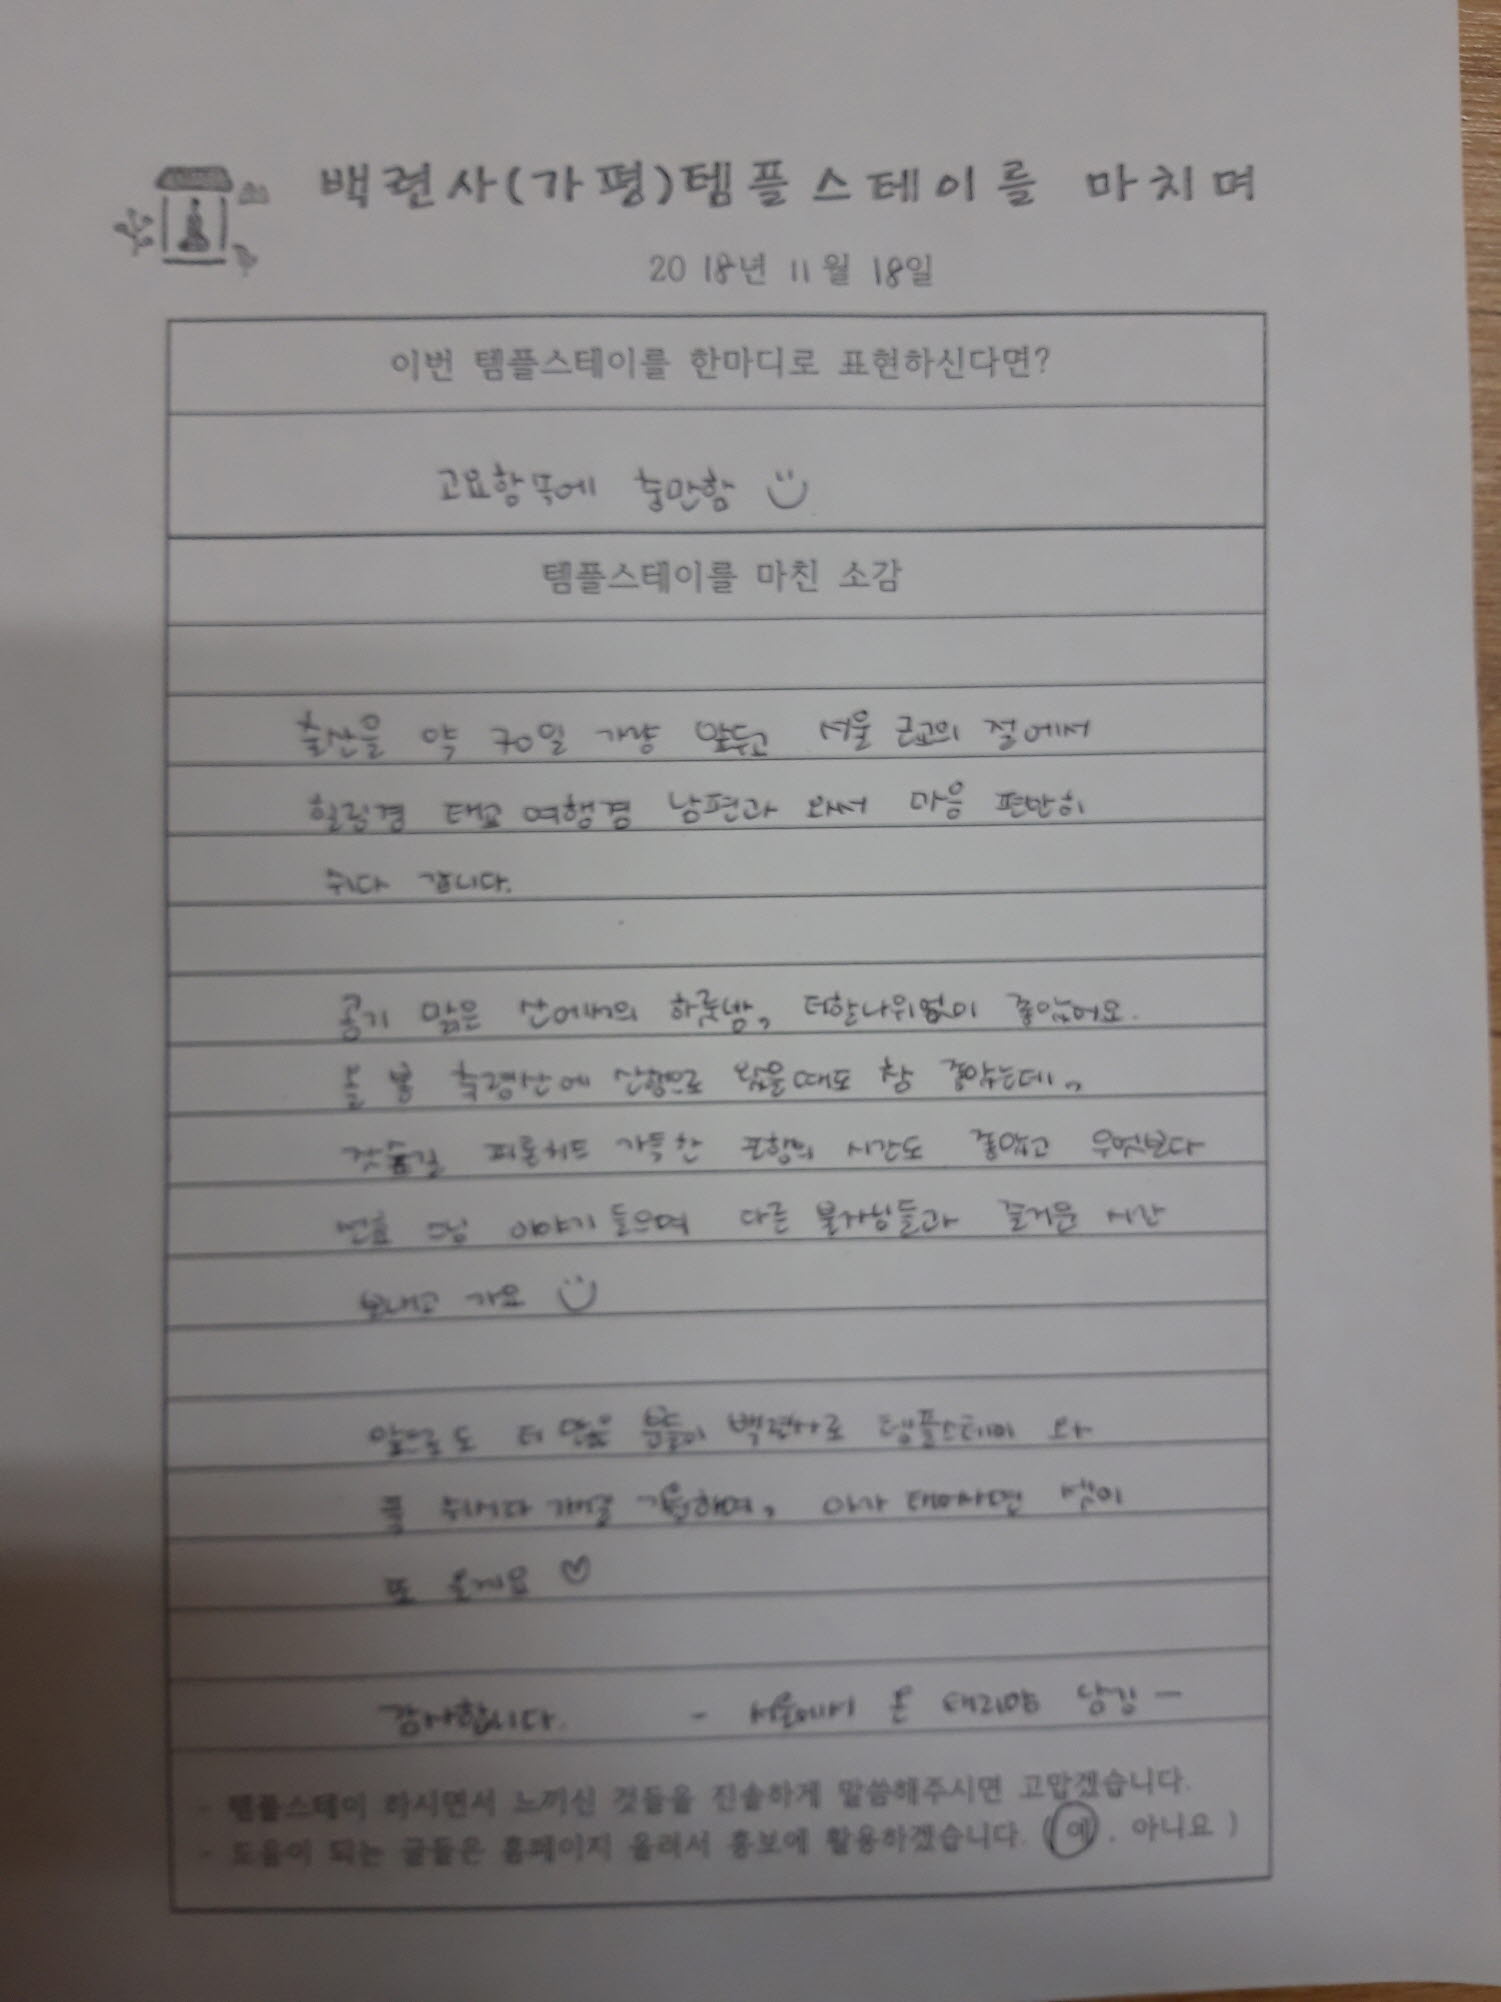 백련사(가평)템플스테이를 마치며
2018년 11월 18일
이번 템플스테이를 한마디로 표현하신다면?
고요함 속에 충만함
템플스테이를 마친 소감
출산을 약 70일 가량 앞두고 서울 근교의 절에서
힐링겸 태교 여행겸 남편과 와서 마음 편안히
쉬다 갑니다.
공기 맑은 산에서의 하룻밤, 더할나위없이 좋았어요.
올 봄 축령산에 산행으로 왔을때도 참 좋았는데,
잣숲길 피톤치드 가득한 포행의 시간도 좋았고 무엇보다
스님 이야기 들으며 다른 불자님들과 즐거운 시간
보내고 가요
앞으로도 더 많은 분들이 백련사로 템플스테이 와
푹 쉬시다 가시길 기원하며, 아가 태어나면 셋이
또 올게요 ♡
감사합니다. - 서울에서 온 -
- 템플스테이 하시면서 느끼신 것들을 진솔하게 말씀해주시면 고맙겠습니다.
- 도움이 되는 글들은 홈페이지 올려서 홍보에 활용하겠습니다. (예, 아니요)